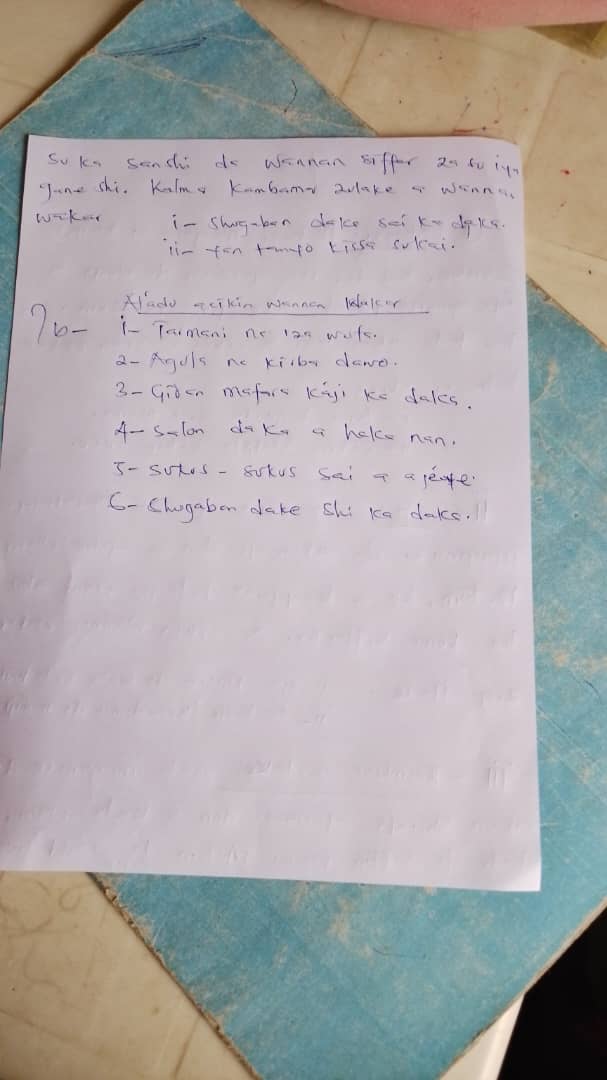 su ka san shi da wannan siffar za su iya
gane shi. Kalma Kambama zulake a wannan
wakar
i- Shugaban dake sai ka daka.
ii- tan tamfo kissa sukai.
Al'adu acikin wannan wakar
7b- i- Tarmani na iza wuta.
2- Agula na kirba dawo.
3- Gidan mafara kaji ka daka.
4- Salon daka a haka nan.
5- sukus - sukus sai a ajéye.
6- Shugaban dake shi ka daka.